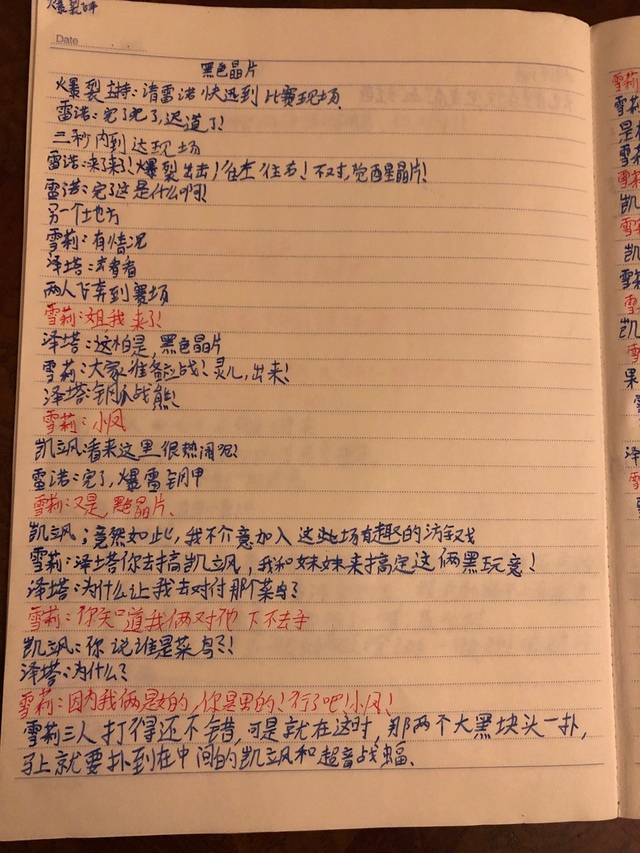 爆裂
Date
黑色晶片
爆裂主持：请雷诺快迅到比赛现场
雷诺：完了完了，迟道了！
三秒内到达现场
雷诺：来了来了！爆裂出击！往左往右！不又寸，觉酉星晶片！
雷诺：完了这是什么啊！
另一个土也方
雪莉：有情况
泽塔：去看看
两人飞奔到赛场
雪莉：姐我来了！
泽塔：这怕是，黑色晶片
雪莉：大家准备应战！灵儿，出来！
泽塔：钢爪战熊！
雪莉：小凤
凯立飒看来这里很热闹呢！
雷诺：完了，爆雷钥甲
雪莉：又是，黑色晶片．
凯立飒；竟然如此，我不介意加入这些场有趣的游戏
雪莉：泽塔你去搞凯立飒，我和妹妹来搞定这俩黑玩意！
泽塔：为什么让我去对付那个菜鸟？
雪莉：你知道我俩对他下不去手
凯立飒：你说谁是菜鸟？！
泽塔：为什么？
雪莉：因为我俩是女的，你是男的！行了吧！小凤！
雪莉三人打得还不错，可是就在这时，那两个大黑块头一扑，
马上就要扑到在中间的凯立飒和超音战蝠．
雪莉
雪
是
雪
雪莉
凯
雪
凯
雪
雪
凯
雪
果
雪
泽
雪